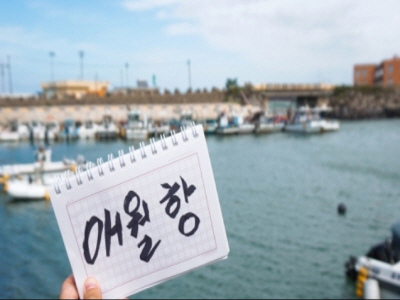 애월항